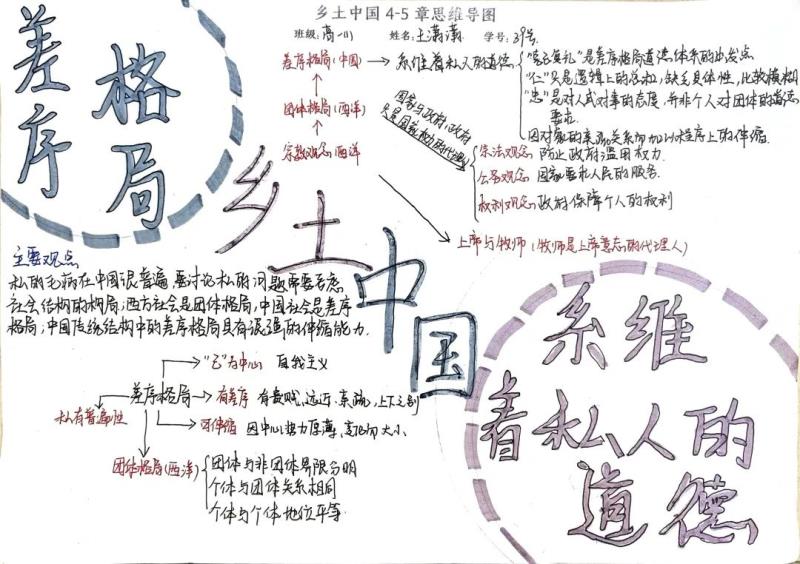 乡土中国 4-5 章思维导图
班级: 高一(1) 姓名: 王潇潇 学号: 39号
差序
格局
差序格局(中国)
团体格局(西洋)
宗教观念(西洋)
系维着私人的道德
"克己复礼"是差序格局道德体系的出发点
"仁"只是逻辑上的总和,缺乏具体性,比较模糊
"忠"是对人或对事的态度,并非个人对团体的
要求.
因对象的亲疏关系而加以程序上的伸缩.
国家与政府,政府
只是国家权力的代理人
宪法观念 防止政府滥用权力.
公务观念 国家要和人民的服务.
权利观念 政府保障个人的权利
上帝与牧师(牧师是上帝意志的代理人)
乡土中国
主要观点
私的毛病在中国很普遍 要讨论私的问题需要考虑
社会结构的格局;西方社会是团体格局,中国社会是差序
格局;中国传统结构中的差序格局具有很强的伸缩能力.
私有普遍性
差序格局
"己"为中心 自我主义
有差序 有贵贱、远近、亲疏,上下之别
可伸缩 因中心势力厚薄,变化而大小
团体格局(西洋)
团体与非团体界限分明
个体与团体关系相同
个体与个体地位平等.
系维
着私人的
道德